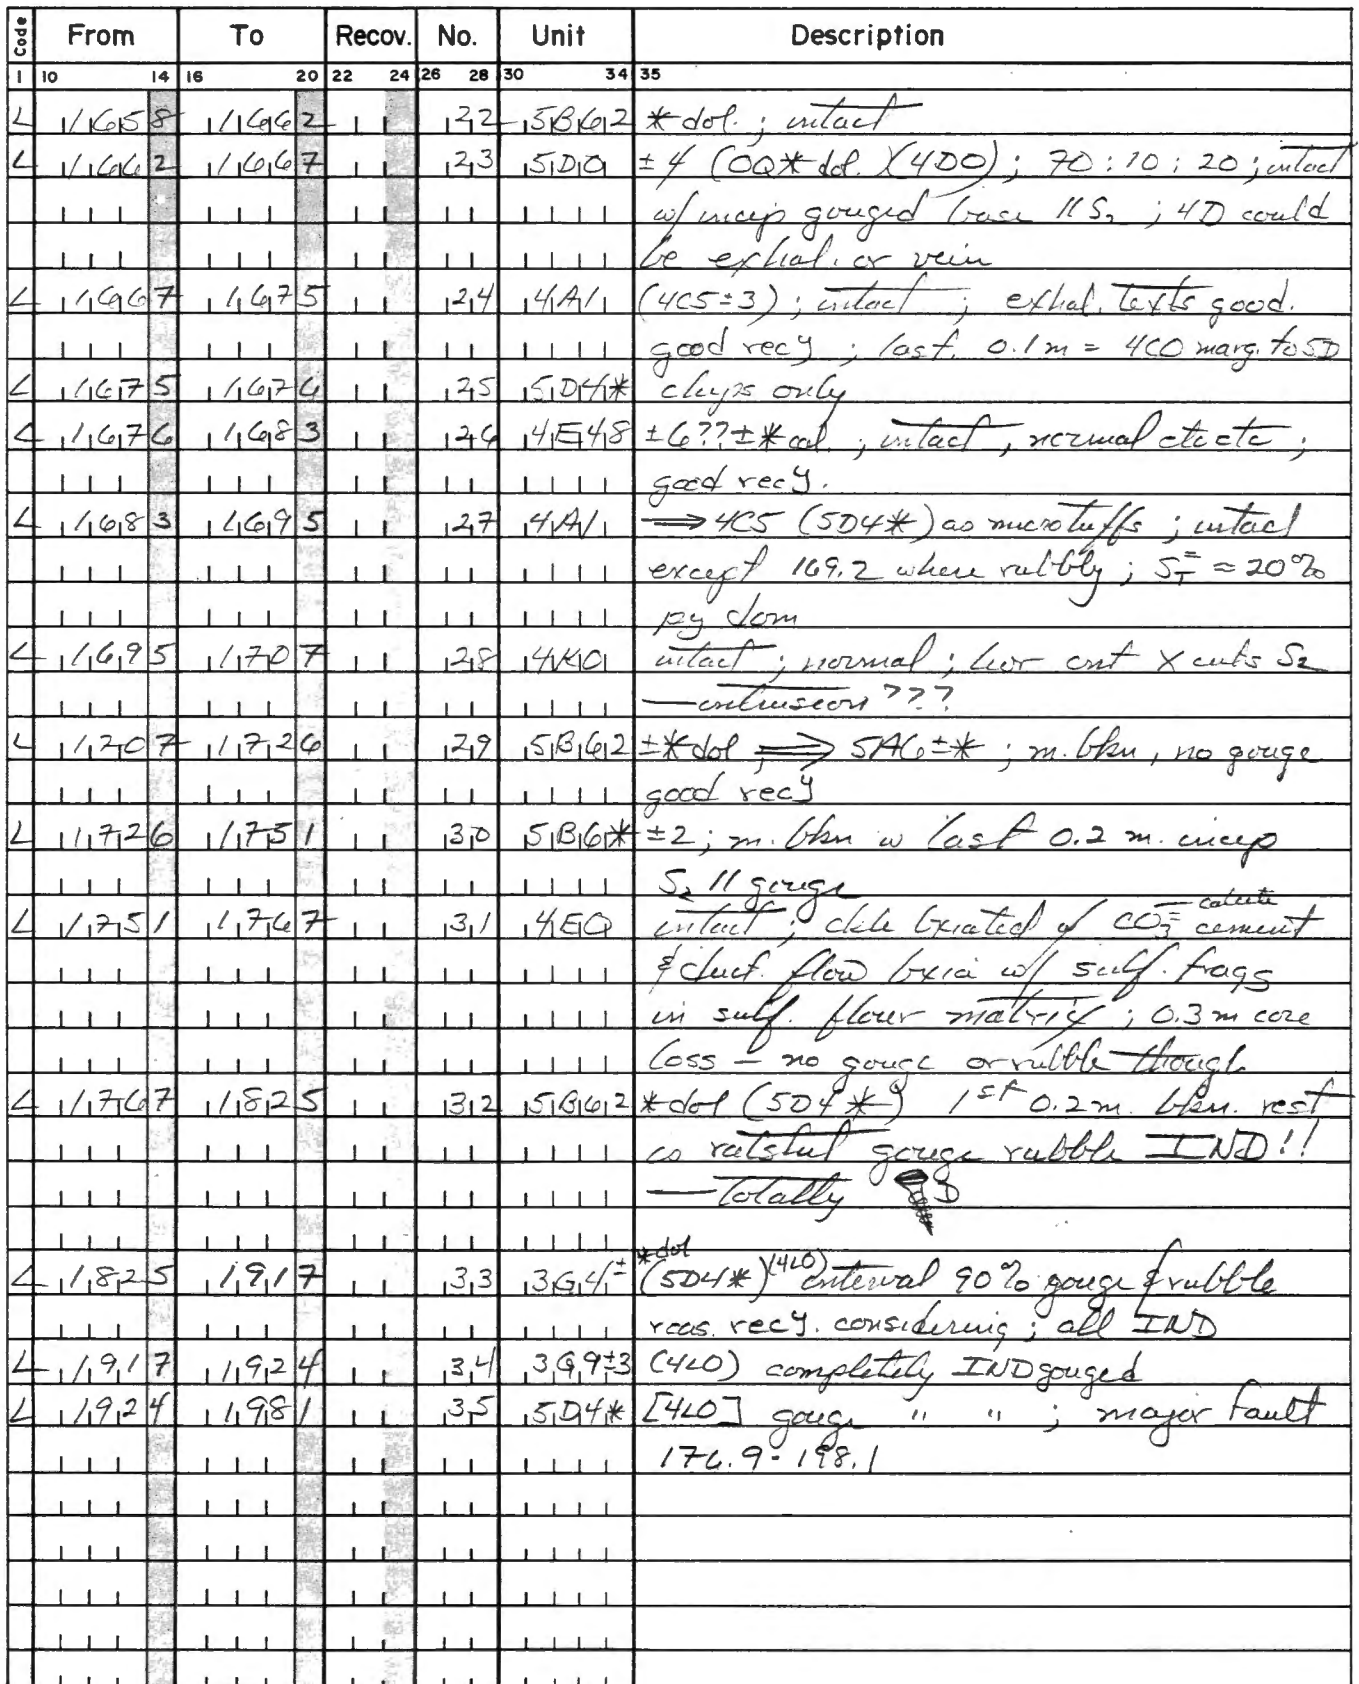 Code From To Recov. No. Unit Description
1 10 14 16 20 22 24 26 28 30 34 35
L 1658 1662 22 5B62 * dol. ; intact
L 1662 1667 23 5D0 ± 4 (OQ* dol.)(4D0) ; 70 : 10 : 20 ; intact
w/ incip gouged base // S2 ; 4D could
be exhal. or vein
L 1667 1675 24 4A1 (4C5±3) ; intact ; exhal. texts good.
good recy ; last 0.1m = 4C0 marg. to 5D
L 1675 1676 25 5D4* chips only
L 1676 1683 26 4E48 ±6??±* cal. ; intact, normal etc etc ;
good recy.
L 1683 1695 27 4A1 ⟹ 4C5 (5D4*) as microtuffs ; intact
except 169.2 where rubbly ; S=T = 20%
py dom
L 1695 1707 28 4K0 intact ; normal ; lwr cnt X cuts S2
— intrusion ???
L 1207 1726 29 5B62 ±* dol ⟹ 5A6±* ; m. bkn, no gouge
good recy
L 1726 1751 30 5B6* ±2 ; m. bkn w last 0.2 m. incip
S2 // gouge
L 1751 1767 31 4E0 intact ; bxiated w/ CO3= calcite cement
& duct. flow bxia w/ sulf. frags
in sulf. flour matrix ; 0.3m core
loss – no gouge or rubble though
L 1767 1825 32 5B62 * dol (5D4*) 1st 0.2m. bkn. rest
gouge rubble IND!!
— totally D
L 1825 1917 33 3G4± *dol (5D4*) (4L0) interval 90% gouge & rubble
reas. recy. considering ; all IND
L 1917 1924 34 3G9±3 (4L0) completely IND gouged
L 1924 1981 35 5D4* [4L0] gouge " " ; major fault
176.9 - 198.1